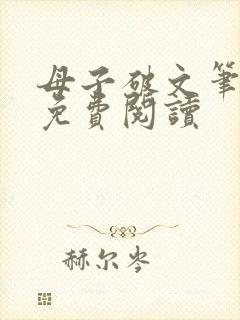 母子破文笔
免費閱讀
赫尔岑